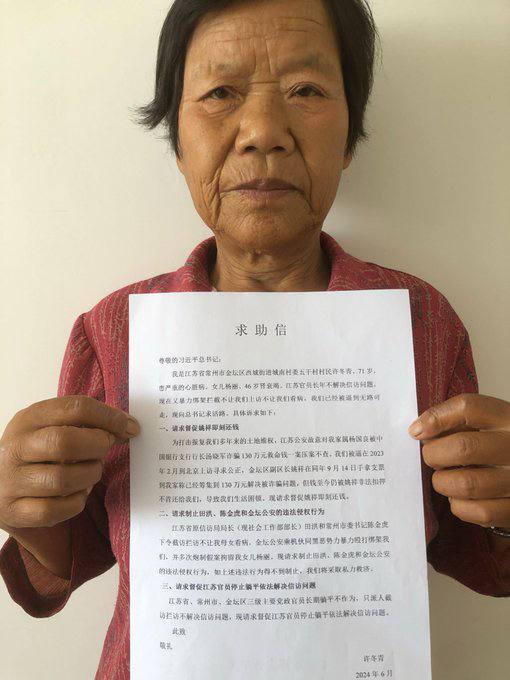 求助信
尊敬的习近平总书记：
我是江苏省常州市金坛区西城街道城南村委五干村村民许冬青，71岁，
患严重的心脏病，女儿杨丽，46岁肾衰竭，江苏官员长年不解决信访问题，
现在又暴力绑架拦截不让我们上访不让我们看病，我们已经被逼到无路可
走，现向总书记求活路。具体诉求如下：
一、请求督促姚祥即刻还钱
为打击报复我们多年来的土地维权，江苏公安故意对我家属杨国良被中
国银行支行行长汤晓军诈骗130万元救命钱一案压案不查，我们被逼在2023
年2月到北京上访寻求公正，金坛区副区长姚祥在同年9月14日手拿支票
到我家称已经筹集到130万元解决被诈骗问题，但钱至今仍被姚祥非法扣押
不肯还给我们，导致我们生活困顿。现请求督促姚祥即刻还钱。
二、请求制止田洪、陈金虎和金坛公安的违法侵权行为
江苏省原信访局局长（现社会工作部部长）田洪和常州市委书记陈金虎
下令截访拦访不让我母女看病，金坛公安乘机伙同黑恶势力暴力殴打绑架我
们，并多次炮制假案拘留我女儿杨丽。现请求制止田洪、陈金虎和金坛公安
的违法侵权行为，如上述违法行为得不到制止，我们将采取私力救济。
三、请求督促江苏官员停止躺平依法解决信访问题
江苏省、常州市、金坛区三级主要党政官员长期躺平不作为，只派人截
访拦访不解决信访问题，现请求督促江苏官员停止躺平依法解决信访问题。
此致
敬礼
许冬青
2024年6月